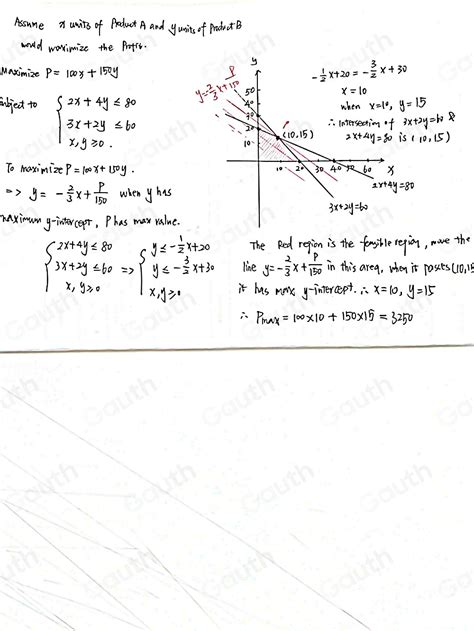 Assume x units of Product A and y units of Product B
would maximize the Profit.
Maximize P = 100x + 150y
subject to { 2x + 4y ≤ 80
3x + 2y ≤ 60
x, y ≥ 0 .
To maximize P = 100x + 150y .
=> y = -2/3 x + P/150 when y has
maximum y-intercept, P has max value.
{ 2x+4y ≤ 80
3x+2y ≤ 60
x, y ≥ 0
=> { y ≤ -1/2 x + 20
y ≤ -3/2 x + 30
x, y ≥ 0
y
P
y = -2/3 x + 150
50
40
30
20
10
(10,15)
10 20 30 40 50 60 x
2x+4y=80
3x+2y=60
-1/2 x + 20 = -3/2 x + 30
x = 10
when x=10, y = 15
∴ Intersection of 3x+2y=60 &
2x+4y=80 is (10,15)
The Red region is the feasible region, move the
line y = -2/3 x + P/150 in this area, when it passes (10,15
it has max y-intercept. ∴ x = 10, y = 15
∴ Pmax = 100×10 + 150×15 = 3250
Gauth